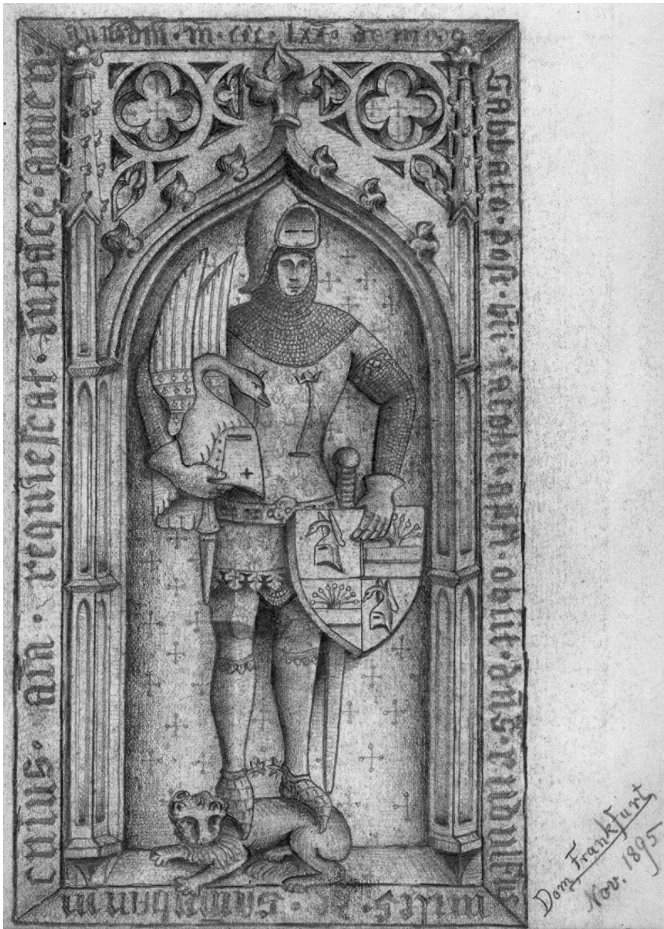 m · ccc · lxx̄
Sabbato · post · bti · iacobi · apli · obiit · dn̄s · rudolfus
miles · de ·
cuius · aīa · requiescat · inpace · amen ·
Dom, Frankfurt,
Nov. 1895